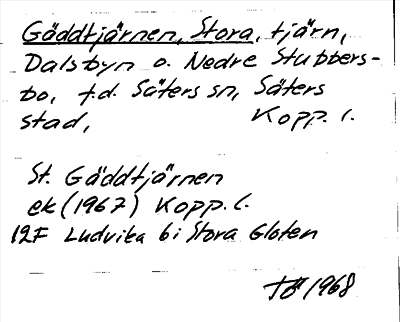 Gäddtjärnen, Stora, tjärn,
Dalsbyn o. Nedre Stubbers-
bo, f.d. Säters sn, Säters
stad, Kopp. l.
St. Gäddtjärnen
ek (1967) Kopp. l.
12F Ludvika 6 i Stora Gloten
TÖ 1968